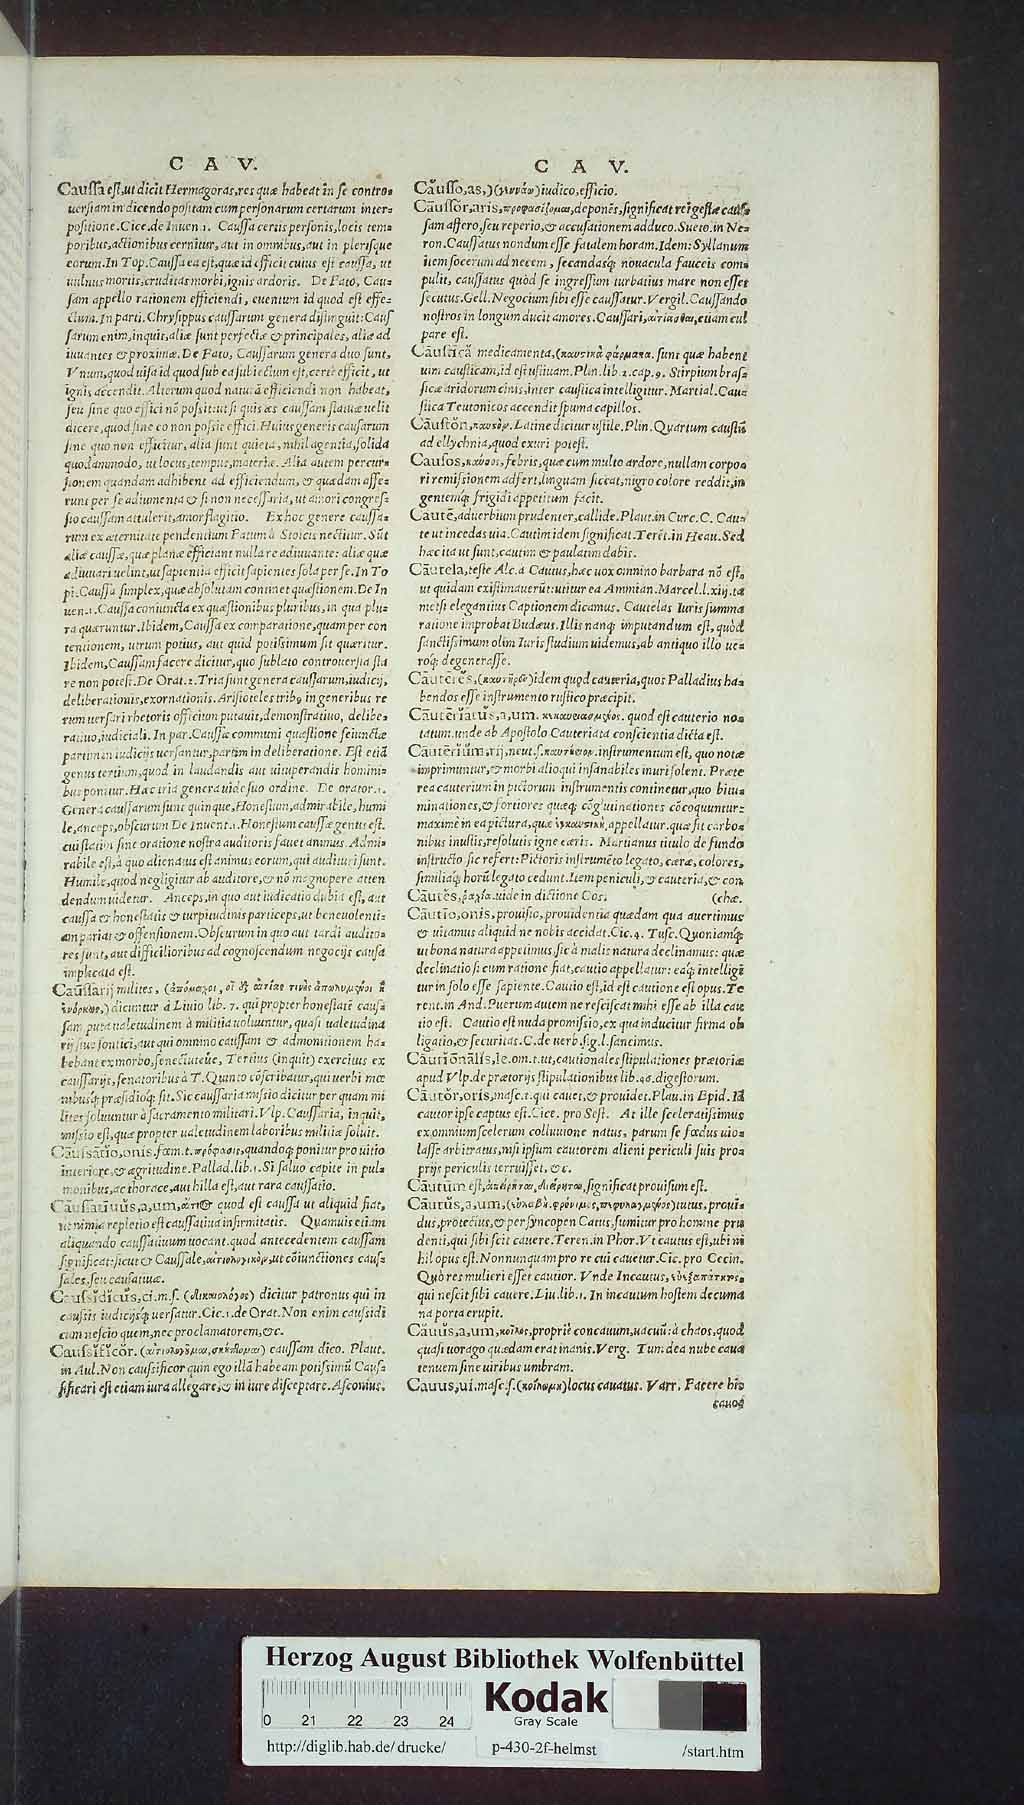 C A V.
Caussa est, ut dicit Hermagoras, res quæ habeat in se contro-
uersiam in dicendo positam cum personarum certarum inter-
positione. Cice. de Inuen. 1. Caussa certis personis, locis tem-
poribus, actionibus cernitur, aut in omnibus, aut in plerisque
eorum. In Top. Caussa ea est, quæ id efficit cuius est caussa, ut
uulnus mortis, cruditas morbi, ignis ardoris. De Fato, Cau-
sam appello rationem efficiendi, euentum id quod est effe-
ctum. In parti. Chrysippus caussarum genera distinguit: Caus
sarum enim, inquit, aliæ sunt perfectæ & principales, aliæ ad
iuuantes & proximæ. De Fato, Caussarum genera duo sunt,
Vnum, quod uisa id quod sub ea subiectum est, certè efficit, ut
ignis accendit. Alterum quod naturā efficiendi non habeat,
seu sine quo effici nō possit: ut si quis æs caussam statuæ uelit
dicere, quod sine eo non possit effici. Huius generis causarum
sine quo non efficitur, alia sunt quieta, nihil agentia, solida
quodammodo, ut locus, tempus, materia. Alia autem percur-
sionem quandam adhibent ad efficiendum, & quædam affe-
runt per se adiumenta & si non necessaria, ut amori congres-
sio caussam attulerit, amor flagitio. Ex hoc genere caussa-
rum ex æternitate pendentium Fatum à Stoicis nectitur. Sūt
aliæ caussæ, quæ planæ efficiant nulla re adiuuante: aliæ quæ
adiuuari uelint, ut sapientia efficit sapientes sola per se. In To
pi. Caussa simplex, quæ absolutam continet quæstionem. De In
uen. 1. Caussa coniuncta ex quæstionibus pluribus, in qua plu-
ra quæruntur. Ibidem, Caussa ex comparatione, quam per con
tentionem, utrum potius, aut quid potissimum sit quæritur.
Ibidem, Caussam facere dicitur, quo sublato controuersia sta
re non potest. De Orat. 2. Tria sunt genera caussarum, iudicij,
deliberationis, exornationis. Aristoteles tribꝰ in generibus re
rum uersari rhetoris officium putauit, demonstratiuo, delibe-
ratiuo, iudiciali. In par. Caussæ communi quæstione seiunctæ
partim in iudicijs uersantur, partim in deliberatione. Est etiā
genus tertium, quod in laudandis aut uituperandis homini-
bus ponitur. Hæc tria genera uide suo ordine. De orator. 1.
Genera caussarum sunt quinque, Honestum, admirabile, humi
le, anceps, obscurum De Inuent. 1. Honestum caussæ genus est.
cui statim sine oratione nostra auditoris fauet animus. Admi-
rabile est, à quo alienatus est animus eorum, qui audituri sunt.
Humile, quod negligitur ab auditore, & nō magnopere atten
dendum uidetur. Anceps, in quo aut iudicatio dubia est, aut
caussa & honestatis & turpitudinis particeps, ut beneuolenti-
am pariat & offensionem. Obscurum in quo aut tardi audito-
res sunt, aut difficilioribus ad cognoscendum negocijs causa
implicata est.
Caussarij milites, (ἀπόμαχοι,
dicuntur à Liuio lib. 7. qui propter honestatē caus-
sam puta ualetudinem à militia soluuntur, quasi ualetudina
rij siue sontici, aut qui omnino caussam & admonitionem ha-
bebant ex morbo, senectuteue, Tertius (inquit) exercitus ex
caussarijs, senatoribus à T. Quinto cōscribatur, qui urbi mœ
nibusq́; præsidioq́; sit. Sic caussaria missio dicitur per quam mi
lites soluuntur à sacramento militari. Vlp. Caussaria, inquit,
missio est, quæ propter ualetudinem laboribus militiæ soluit.
Caussatio, onis. fœm. t. πρόφασις, quandoq́; ponitur pro uitio
interiore, & ægritudine. Pallad. lib. 1. Si saluo capite in pul-
monibus, ac thorace, aut hilla est, aut rara caussatio.
Caussatiuus, a, um, quod est caussa ut aliquid fiat,
ut nimia repletio est caussatiua infirmitatis. Quamuis etiam
aliquando caussatiuum uocant. quod antecedentem caussam
significat: sicut & Caussale, αἰτιολογικὸν, ut cōiunctiones caus-
sales, seu causatiuæ.
Caussidicus, ci. m. s. (δικαιολόγος) dicitur patronus qui in
caussis iudicijsq́; uersatur. Cic. 1. de Orat. Non enim caussidi
cum nescio quem, nec proclamatorem, &c.
Caussificor. caussam dico. Plaut.
in Aul. Non caussificor quin ego illā habeam potissimū Caus-
sificari est etiam iura allegare, & in iure disceptare. Asconius.
C A V.
Causso, as,) iudico, efficio.
Caussor, aris, προφασίζομαι, deponēs, significat rei gestæ caus-
sam affero, seu reperio, & accusationem adduco. Sueto. in Ne-
ron. Caussatus nondum esse fatalem horam. Idem: Syllanum
item socerum ad necem, secandasq́; nouacula fauceis com-
pulit, caussatus quòd se ingressum turbatius mare non esset
secutus. Gell. Negocium sibi esse caussatur. Vergil. Caussando
nostros in longum ducit amores. Caussari, αἰτιᾶσθαι, etiam cul
pare est.
Caustica medicamenta, (καυστικὰ φάρμακα. sunt quæ habent
uim causticam, id est ustiuam. Plin. lib. 2. cap. 9. Stirpium bras-
sicæ aridorum cinis, inter caustica intelligitur. Martial. Cau-
stica Teutonicos accendit spuma capillos.
Causton, καυστὸν. Latine dicitur ustile. Plin. Quartum caustū
ad ellychnia, quod exuri potest.
Causos, καῦσος, febris, quæ cum multo ardore, nullam corpo-
ri remissionem adfert, linguam siccat, nigro colore reddit, in
gentemq́; frigidi appetitum facit.
Cautè, aduerbium prudenter, callide. Plaut. in Curc. C. Cau-
te ut incedas uia. Cautim idem significat. Terēt. in Heau. Sed
hæc ita ut sunt, cautim & paulatim dabis.
Cautela, teste Alc. à Cauius, hæc uox omnino barbara nō est,
ut quidam existimauerūt: utitur ea Ammian. Marcel. l. xiij. ta
metsi elegantius Captionem dicamus. Cautelas Iuris summa
ratione improbat Budæus. Illis nanq́; imputandum est, quòd
sanctissimum olim Iuris studium uidemus, ab antiquo illo ue-
roq́; degenerasse.
Cauteres, (καυτῆρες) idem quod cauteria, quos Palladius ha-
bendos esse instrumento rustico præcipit.
Cauteriatus, a, um. quod est cauterio no-
tatum. unde ab Apostolo Cauteriata conscientia dicta est.
Cauterium, rij, neut. s. καυτήριον. instrumentum est, quo notæ
imprimuntur, & morbi alioqui insanabiles inuri solent. Præte
rea cauterium in pictorum instrumentis continetur, quo bitu-
minationes, & fortiores quæq́; cōglutinationes cōcoquuntur:
maximè in ea pictura, quæ ἐγκαυστική, appellatur. quæ fit carbo-
nibus inustis, resolutis igne cæris. Martianus titulo de fundo
instructo sic refert: Pictoris instrumēto legato, cæræ, colores,
similiaq́; horū legato cedunt. Item peniculi, & cauteria, & con
Cautes, ῥαχία. uide in dictione Cos. (chæ.
Cautio, onis, prouisio, prouidentia quædam qua auertimus
& uitamus aliquid ne nobis accidat. Cic. 4. Tusc. Quoniamq́;
ut bona natura appetimus, sic à malis natura declinamus: quæ
declinatio si cum ratione fiat, cautio appellatur: eaq́; intelligē
tur in solo esse sapiente. Cautio est, id est cautione est opus. Te
rent. in And. Puerum autem ne resciscat mihi esse ab illa cau
tio est. Cautio est nuda promissio, ex qua inducitur firma ob
ligatio, & securitas. C. de uerb. sig. l. sancimus.
Cautionalis, le. om. t. ut, cautionales stipulationes prætoriæ
apud Vlp. de prætorijs stipulationibus lib. 46. digestorum.
Cautor, oris, masc. t. qui cauet, & prouidet. Plau. in Epid. Is
cautor ipse captus est. Cice. pro Sest. At ille sceleratissimus
ex omnium scelerum colluuione natus, parum se fœdus uio-
lasse arbitratus, nisi ipsum cautorem alieni periculi suis pro-
prijs periculis terruisset, &c.
Cautum est, significat prouisum est.
Cautus, a, um, (εὐλαβὴς, φρόνιμος, πεφυλαγμένος) tutus, proui-
dus, protectus, & per syncopen Catus, sumitur pro homine pru
denti, qui sibi scit cauere. Teren. in Phor. Vt cautus est, ubi ni
hil opus est. Nonnunquam pro re cui cauetur. Cic. pro Cecin.
Quo res mulieri esset cautior. Vnde Incautus,
qui nescit sibi cauere. Liu. lib. 1. In incautum hostem decuma
na porta erupit.
Cauus, a, um, κοῖλος, propriè concauum, uacuū: à chaos, quod
quasi uorago quædam erat inanis. Verg. Tum dea nube caua
tenuem sine uiribus umbram.
Cauus, ui. masc. s. (κοίλωμα) locus cauatus. Varr. Facere bīo
cauos
Herzog August Bibliothek Wolfenbüttel
0 21 22 23 24
Kodak
Gray Scale
http://diglib.hab.de/drucke/ p-430-2f-helmst /start.htm